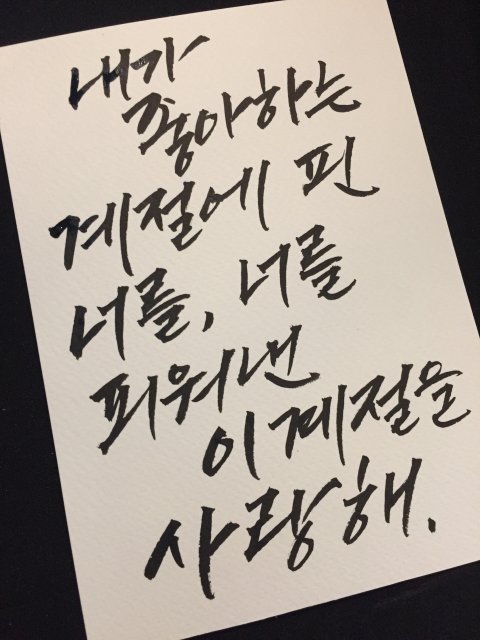 내가
좋아하는
계절에 핀
너를, 너를
피워낸
이 계절을
사랑해.